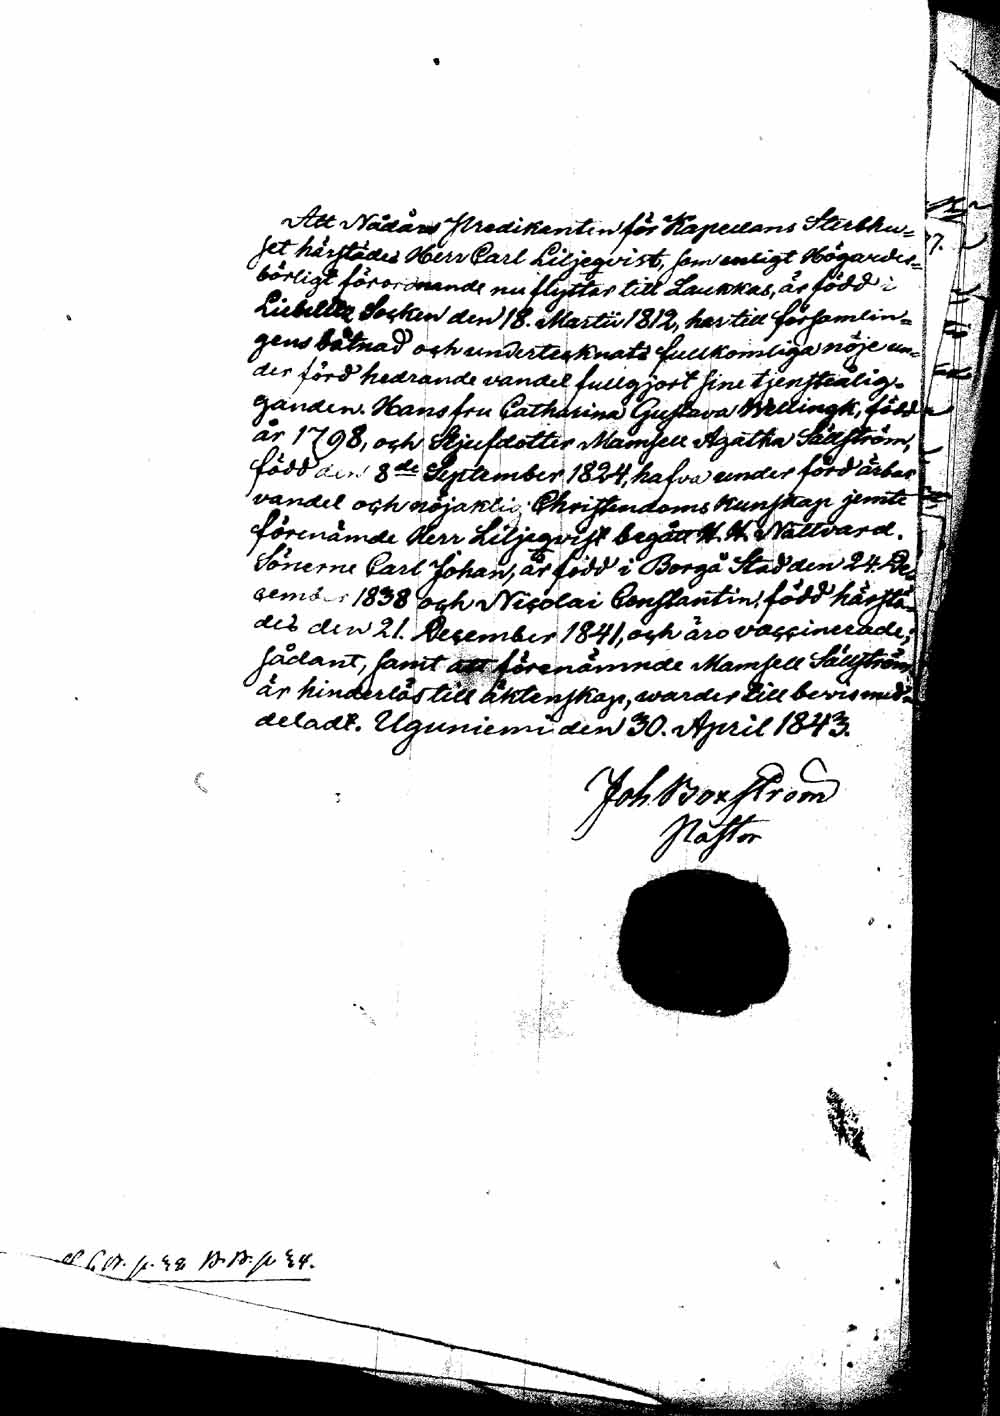 Att Nådårs Predikanten för Kapellans Sterbhu=
set härstädes Herr Carl Liljeqvist, som enligt Högvördes=
börligt förordnande nu flyttar till Laukkas, är född i
Liebelits Socken den 18. Martii 1812, har till församlin=
gens båtnad och undertecknads fullkomliga nöje un=
der förd hedrande vandel fullgjort sine tjensteålig=
ganden. Hans fru Catharina Gustava Wellingk, född
år 1798, och Stjufdotter Mamsell Agatha Sällström,
född den 8de September 1824, hafva under förd ärbar
vandel och nöjaktig Christendoms kunskap jemte
förenämde Herr Liljeqvist begått H. H. Nattvard.
Sönerne Carl Johan, är född i Borgå Stad den 24. De=
cember 1838 och Nicolai Constantin, född härstä=
des den 21. December 1841, och äro vaccinerade;
sådant, samt att förenämnde Mamsell Sällström
är hinderlös till äktenskap, warder till bevis med=
deladt. Uguniemi den 30. April 1843.
Joh Boxström
Pastor